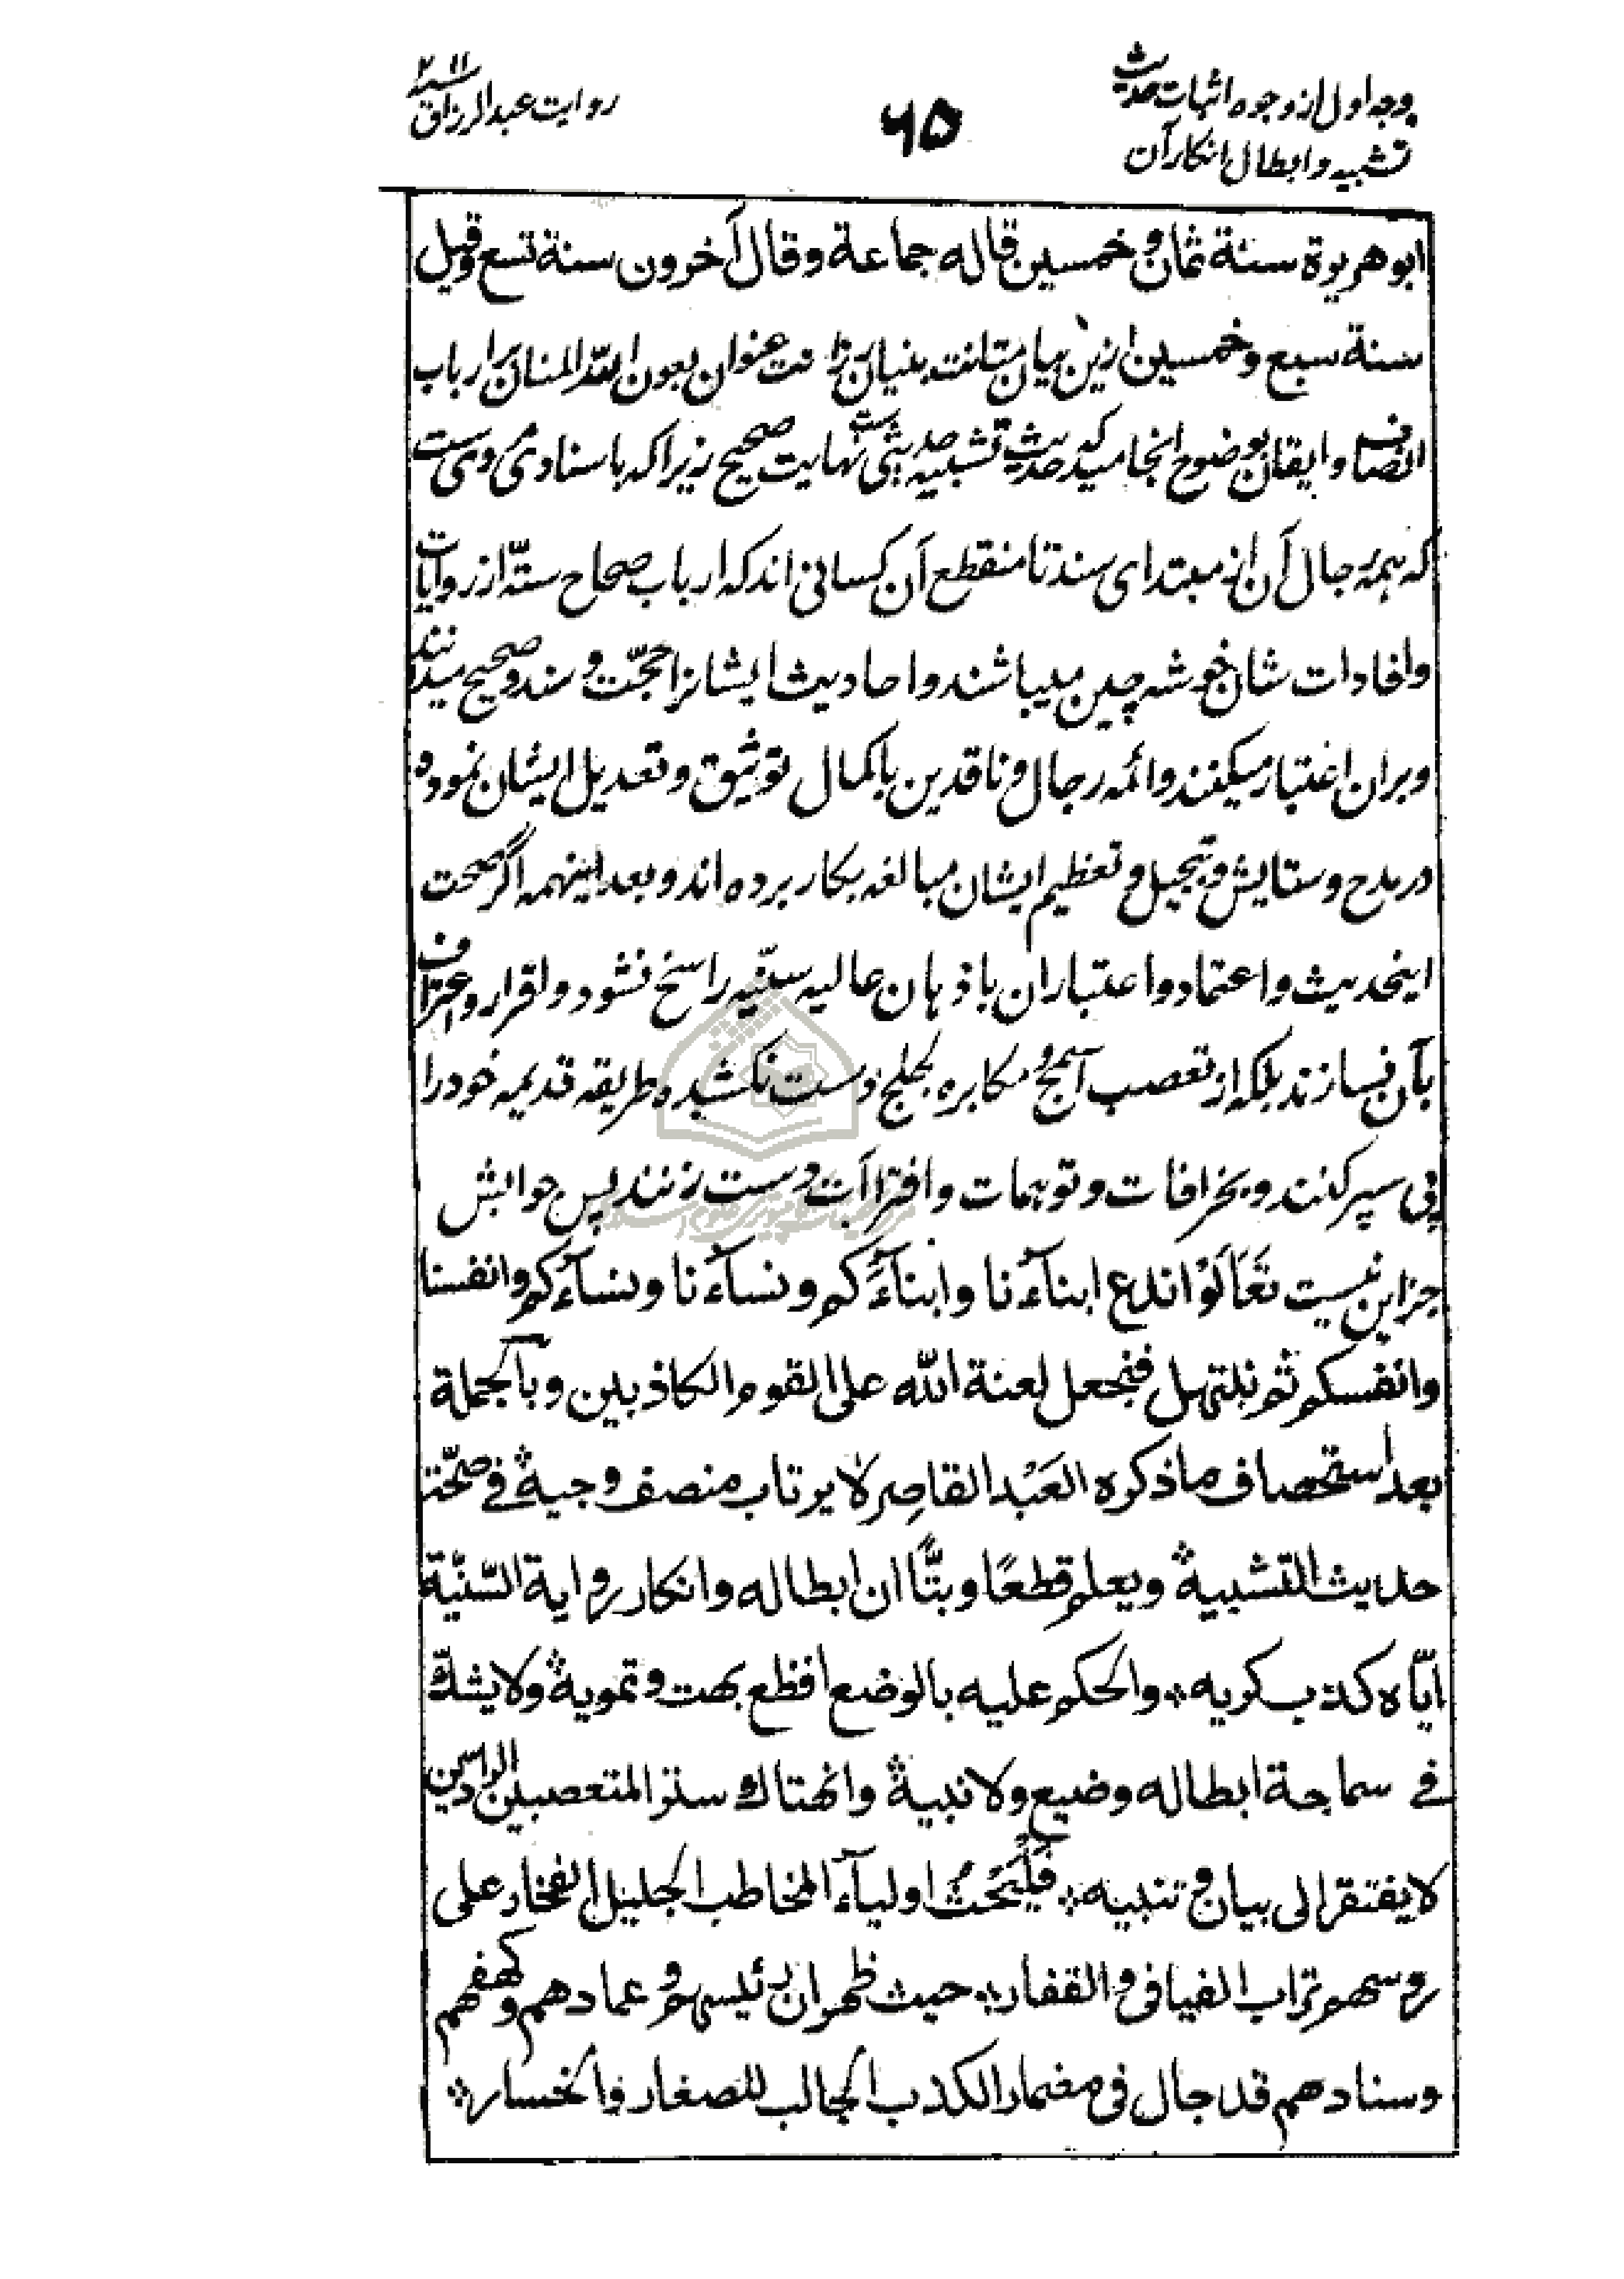 وجه اول از وجوه اثبات حدیث
تشبیه و ابطال انکار آن
۶۵
روایت عبد الرزاق
ابو هریرة سنة ثمان و خمسین قاله جماعة و قال آخرون سنة تسع و قیل
سنة سبع و خمسین ازین بیان متانت بنیان رزانت عنوان بعون الله المنان بر ارباب
انصاف و ایقان بوضوح انجامید که حدیث تشبیه حدیثی ست نهایت صحیح زیرا که باسنادی مروی ست
که همه رجال آن از مبتدای سند تا منقطع آن کسانی اند که ارباب صحاح ستّه از روایات
و افادات شان خوشه چین میباشند و احادیث ایشانرا حجّت و سند و صحیح میدانند
و بران اعتبار میکنند و ائمه رجال و ناقدین باکمال توثیق و تعدیل ایشان نموده
در مدح و ستایش و تبجیل و تعظیم ایشان مبالغه بکار برده اند و بعد اینهمه اگر صحت
اینحدیث و اعتماد و اعتبار ان باذهان عالیه سنّیه راسخ نشود و اقرار و اعتراف
بآن نسازند بلکه از تعصب اسمج و مکابره لجلج دست نکشیده طریقه قدیمه خود را
پی سپر کنند و بخرافات و توهمات و افتراآت دست زنند پس جوابش
جز این نیست تَعَالَوْا ندع ابنآءنا و ابنآءَکم و نسآءنا و نسآءکم و انفسنا
و انفسکم ثم نبتهل فنجعل لعنة الله علی القوم الکاذبین و بالجملة
بعد استحصاف ما ذکره العَبْد القاصِر لا یرتاب منصف وجیه فی صحّة
حدیث التشبیه و یعلم قطعًا و بتًّا ان ابطاله و انکار روایة السّنّیة
ایّاه کذب کریه والحکم علیه بالوضع افظع بهت و تمویه و لا یشكّ
فی سماجة ابطاله وضیع و لا نبیه و انهتاك ستر المتعصبین الرادین
لا یفتقر الی بیان و تنبیه فَلْیَحْثُ اولیآء المخاطب الجلیل الفخار علی
روسهم تراب الفیافی و القفار حیث ظهر ان رئیسهم و عمادهم و کهفهم
و سنادهم قد جال فی مضمار الکذب الجالب للصغار و الخسار